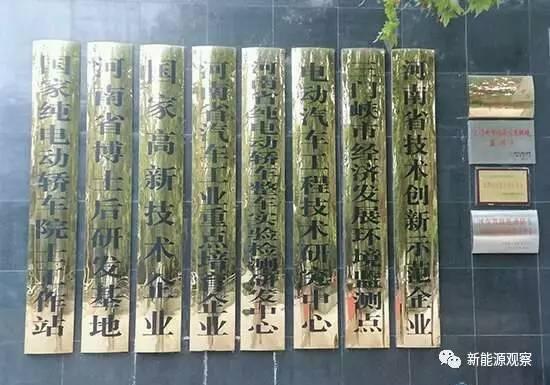 国家纯电动轿车院士工作站
河南省博士后研发基地
国家高新技术企业
河南省汽车工业重点培育企业
河南省纯电动轿车整车实验检测研发中心
电动汽车工程技术研究中心
三门峡市经济发展环境监测点
河南省技术创新示范企业
新能源观察